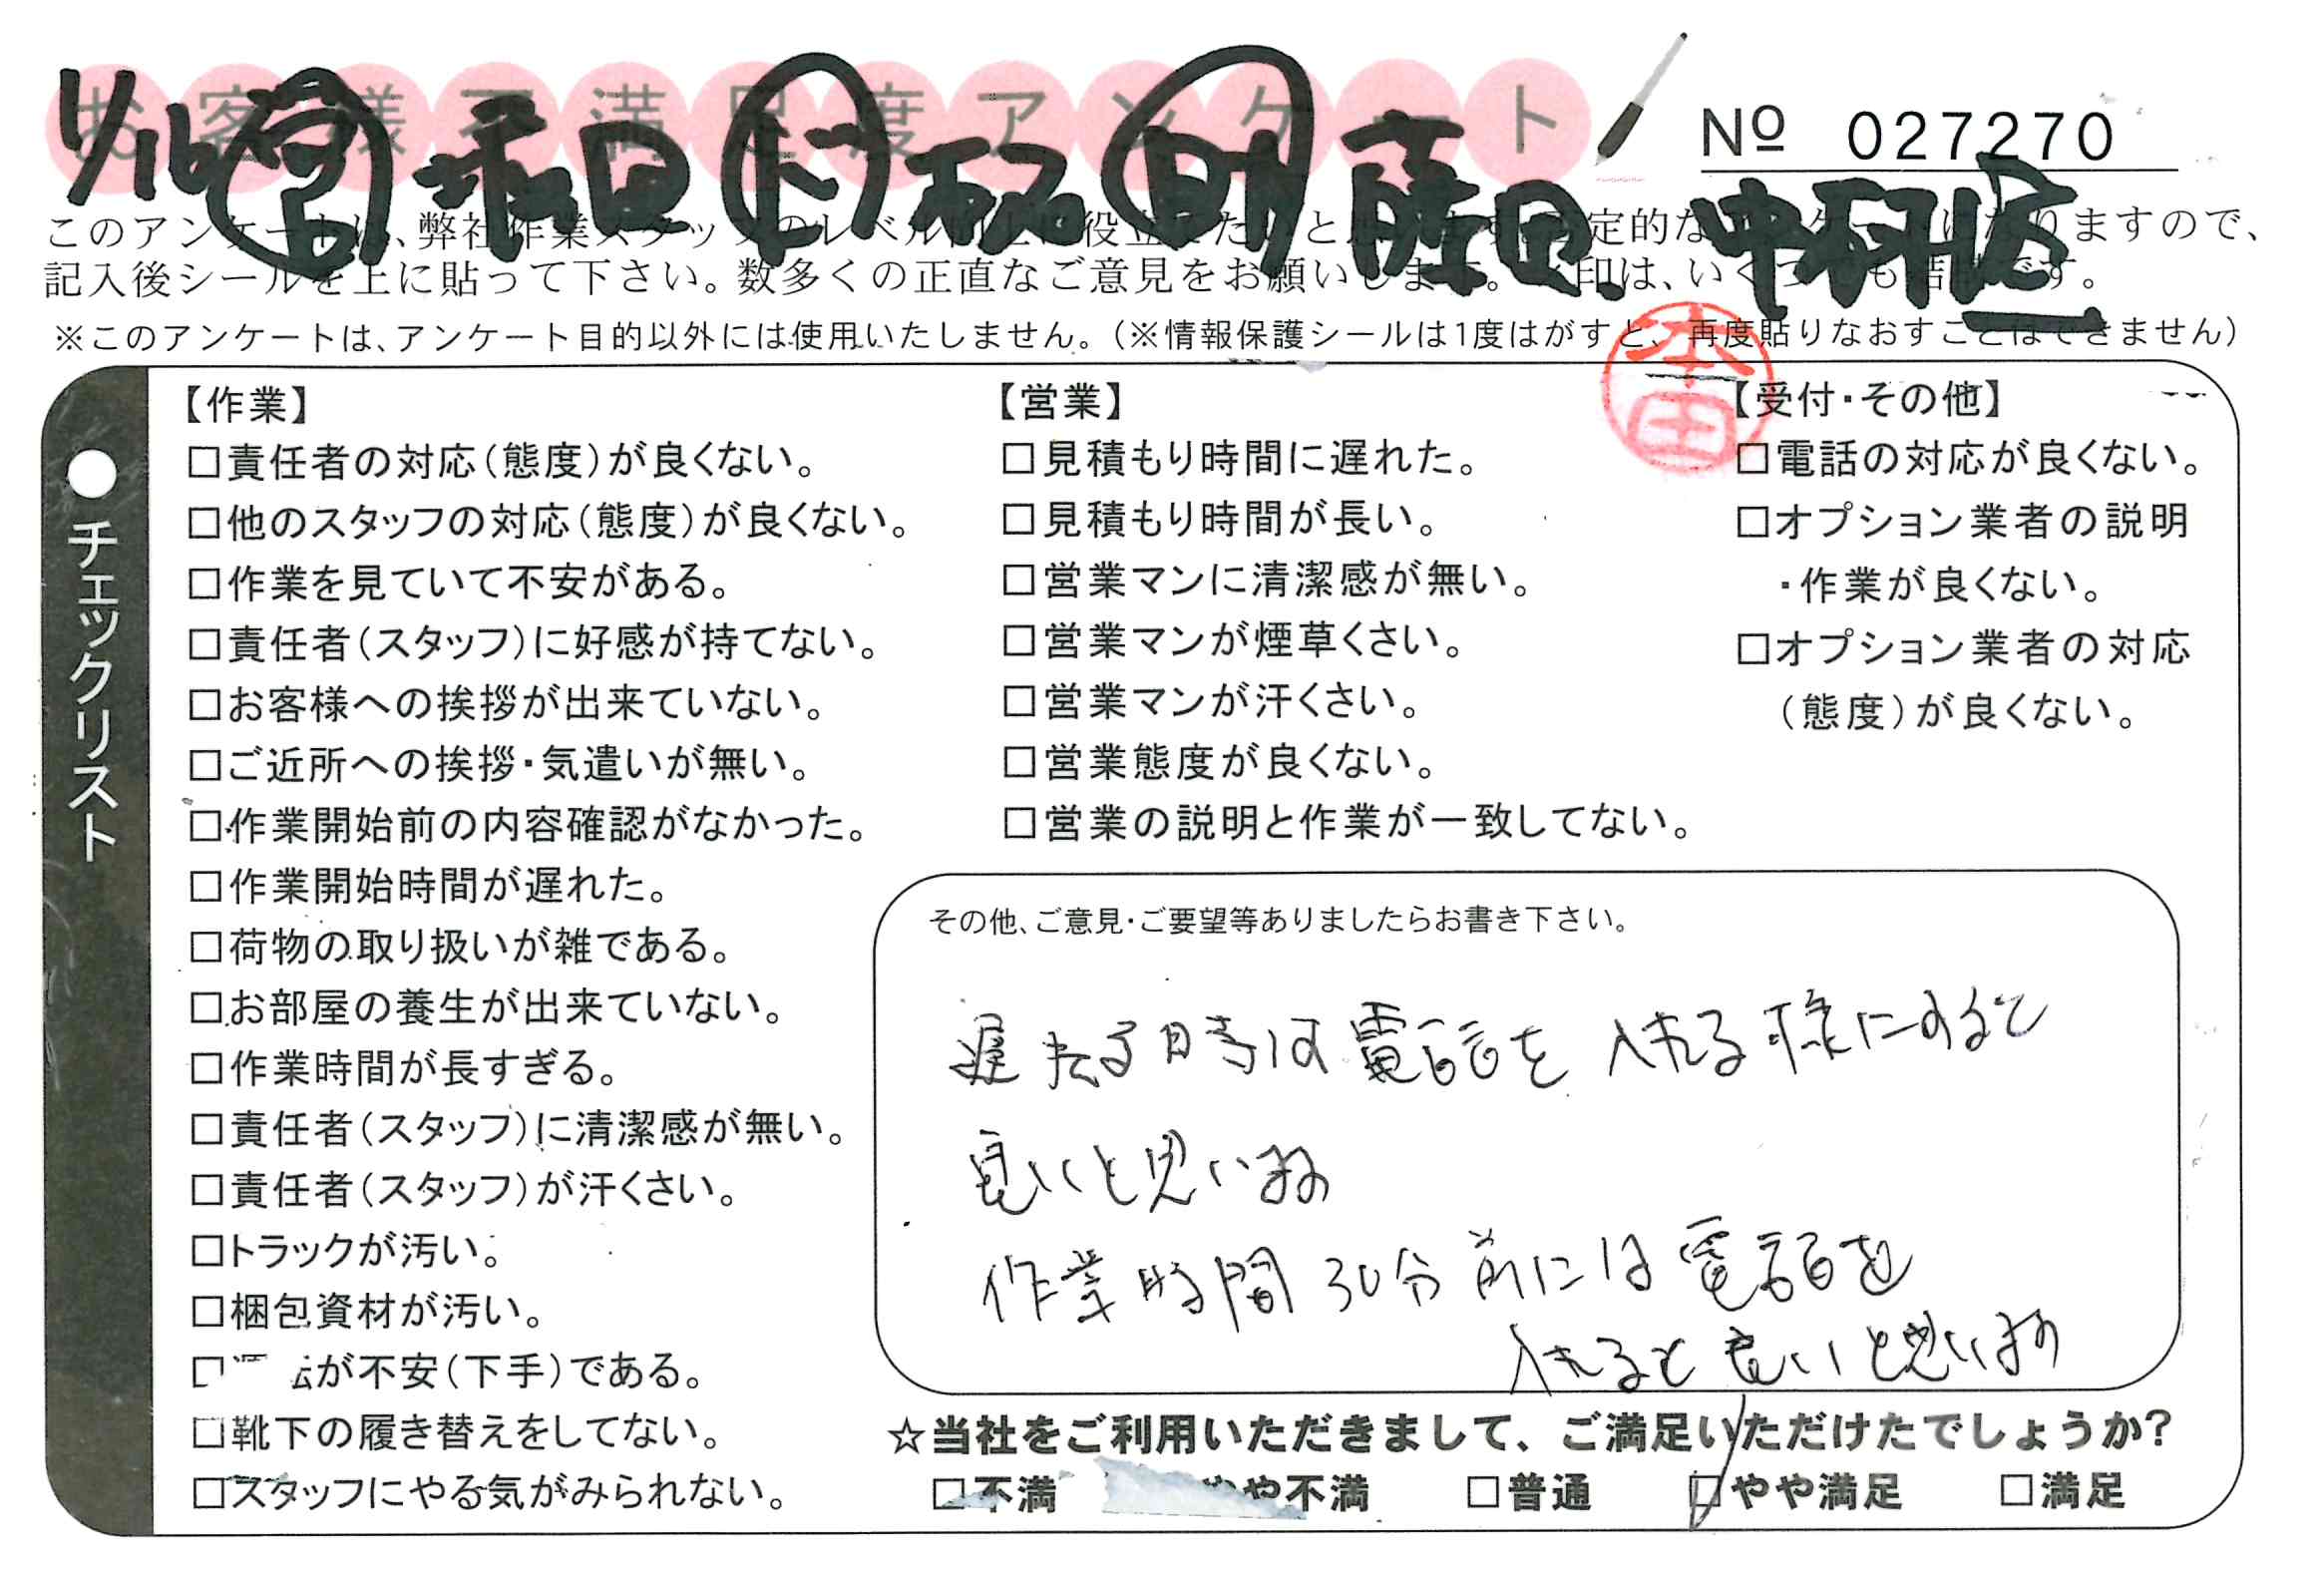 お客様不満足度アンケート
№ 027270
このアンケートは、弊社作業スタッフのレベル向上に役立
記入後シールを上に貼って下さい。数多くの正直なご意見をお願いします。
※このアンケートは、アンケート目的以外には使用いたしません。（※情報保護シールは1度はがすと、再度貼りなおすことはできません）
本田
●チェックリスト
【作業】
□責任者の対応（態度）が良くない。
□他のスタッフの対応（態度）が良くない。
□作業を見ていて不安がある。
□責任者（スタッフ）に好感が持てない。
□お客様への挨拶が出来ていない。
□ご近所への挨拶・気遣いが無い。
□作業開始前の内容確認がなかった。
□作業開始時間が遅れた。
□荷物の取り扱いが雑である。
□お部屋の養生が出来ていない。
□作業時間が長すぎる。
□責任者（スタッフ）に清潔感が無い。
□責任者（スタッフ）が汗くさい。
□トラックが汚い。
□梱包資材が汚い。
が不安（下手）である。
□靴下の履き替えをしてない。
□スタッフにやる気がみられない。
【営業】
□見積もり時間に遅れた。
□見積もり時間が長い。
□営業マンに清潔感が無い。
□営業マンが煙草くさい。
□営業マンが汗くさい。
□営業態度が良くない。
□営業の説明と作業が一致してない。
【受付・その他】
□電話の対応が良くない。
□オプション業者の説明
・作業が良くない。
□オプション業者の対応
（態度）が良くない。
その他、ご意見・ご要望等ありましたらお書き下さい。
遅れる時は電話を入れる様にすると
良いと思います
作業時間30分前には電話を
入れると良いと思います
☆当社をご利用いただきまして、ご満足いただけたでしょうか？
□不満 やや不満 □普通 □やや満足 □満足